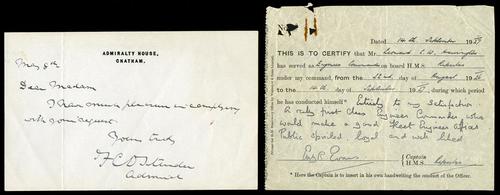 ADMIRALTY HOUSE,
CHATHAM.
May 8th
Dear Madam
I have much pleasure in complying
with your request.
Yours truly
Admiral
Dated 14th September 19
THIS IS TO CERTIFY that Mr. Leonard C. W.
has served as Engineer Commander on board H.M.S. Repulse
under my command, from the 22nd day of August 19
to the 14th day of September 19 during which period
he has conducted himself* Entirely to my satisfaction
A really first class Engineer Commander who
would make a good Fleet Engineer Officer
Public spirited loyal and well liked
Evans
Captain
H.M.S. Repulse
* Here the Captain is to insert in his own handwriting the conduct of the Officer.